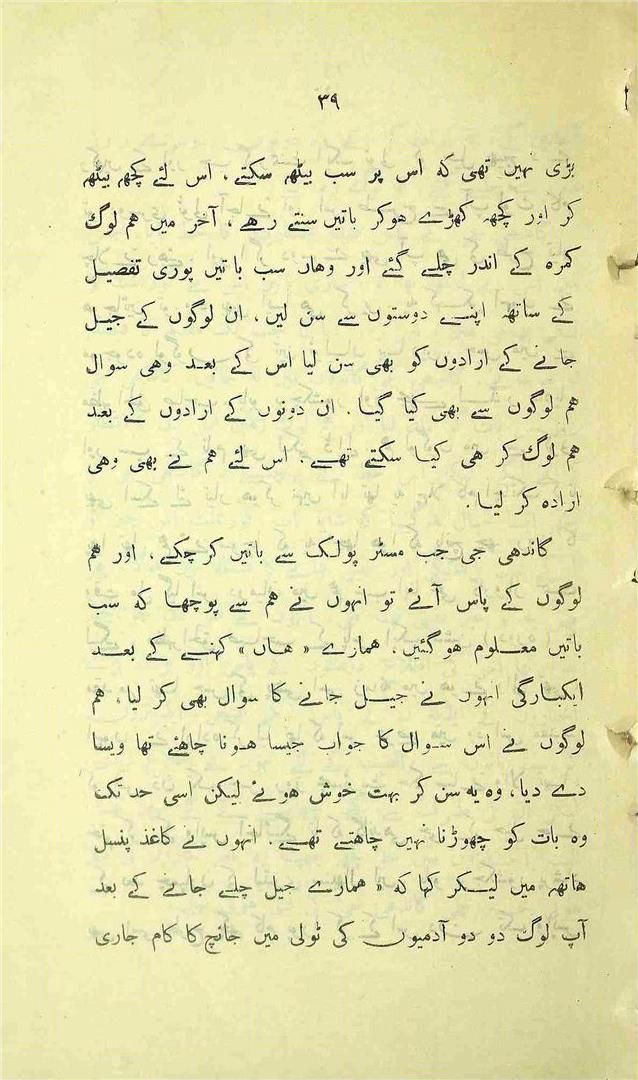 ۳۹
بڑی نہیں تھی که اس پر سب بیٹھ سکتے ، اس لئے کچھ بیٹھ
کر اور کچھ کھڑے ھوکر باتیں سنتے رھے ، آخر میں ھم لوگ
کمرہ کے اندر چلے گئے اور وھاں سب باتیں پوری تفصیل
کے ساتھ اپنے دوستوں سے سن لیں ، ان لوگوں کے جیل
جانے کے ارادوں کو بھی سن لیا اس کے بعد وھی سوال
ھم لوگوں سے بھی کیا گیا . ان دونوں کے ارادوں کے بعد
ھم لوگ کر ھی کیا سکتے تھے . اس لئے ھم نے بھی وھی
ارادہ کر لیا .
گاندھی جی جب مسٹر پولک سے باتیں کرچکے ، اور ھم
لوگوں کے پاس آئے تو انہوں نے ھم سے پوچھا که سب
باتیں معلوم ھوگئیں ، ھمارے « ھاں » کہنے کے بعد
ایکبارگی انہوں نے جیل جانے کا سوال بھی کر لیا ، ھم
لوگوں نے اس سوال کا جواب جیسا ھونا چاھئے تھا ویسا
دے دیا ، وہ یه سن کر بہت خوش ھوئے لیکن اسی حد تک
وہ بات کو چھوڑنا نہیں چاھتے تھے . انہوں نے کاغذ پنسل
ھاتھ میں لیکر کہا که « ھمارے جیل چلے جانے کے بعد
آپ لوگ دو دو آدمیوں کی ٹولی میں جانچ کا کام جاری